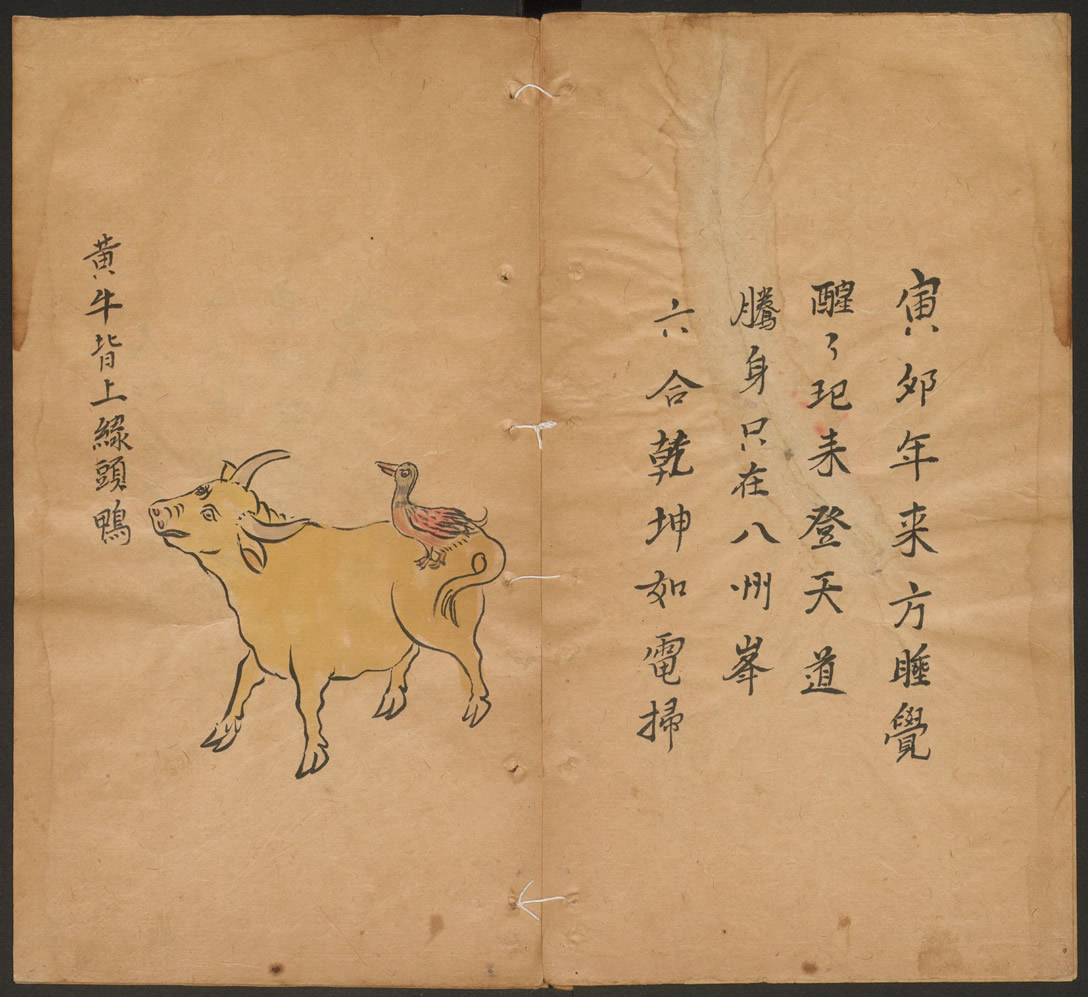 寅夘年来方睡覺
醒了玘来登天道
騰身只在八州峯
六合乾坤如電掃
黄牛背上綠頭鴨